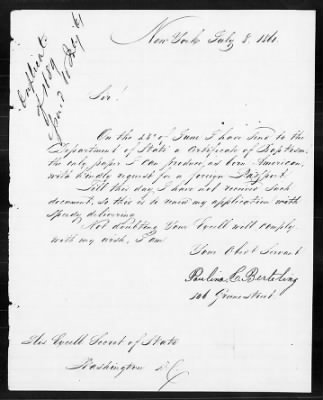 Duplicate
New York July 8. 1861.
Sir!
On the 28th of June I have send to the
Department of State a Certificate of Baptism,
the only paper I can produce, as born American,
with kindly request for a foreign Passport.
Till this day, I have not received such
document, so this is to renew my application with
speedy delivering
Not doubting Your Excell will comply
with my wish, I am
Your Obed Servant
Paulina C. Berteling
Grand Street
His Excell Secret of State
Washington D.C.